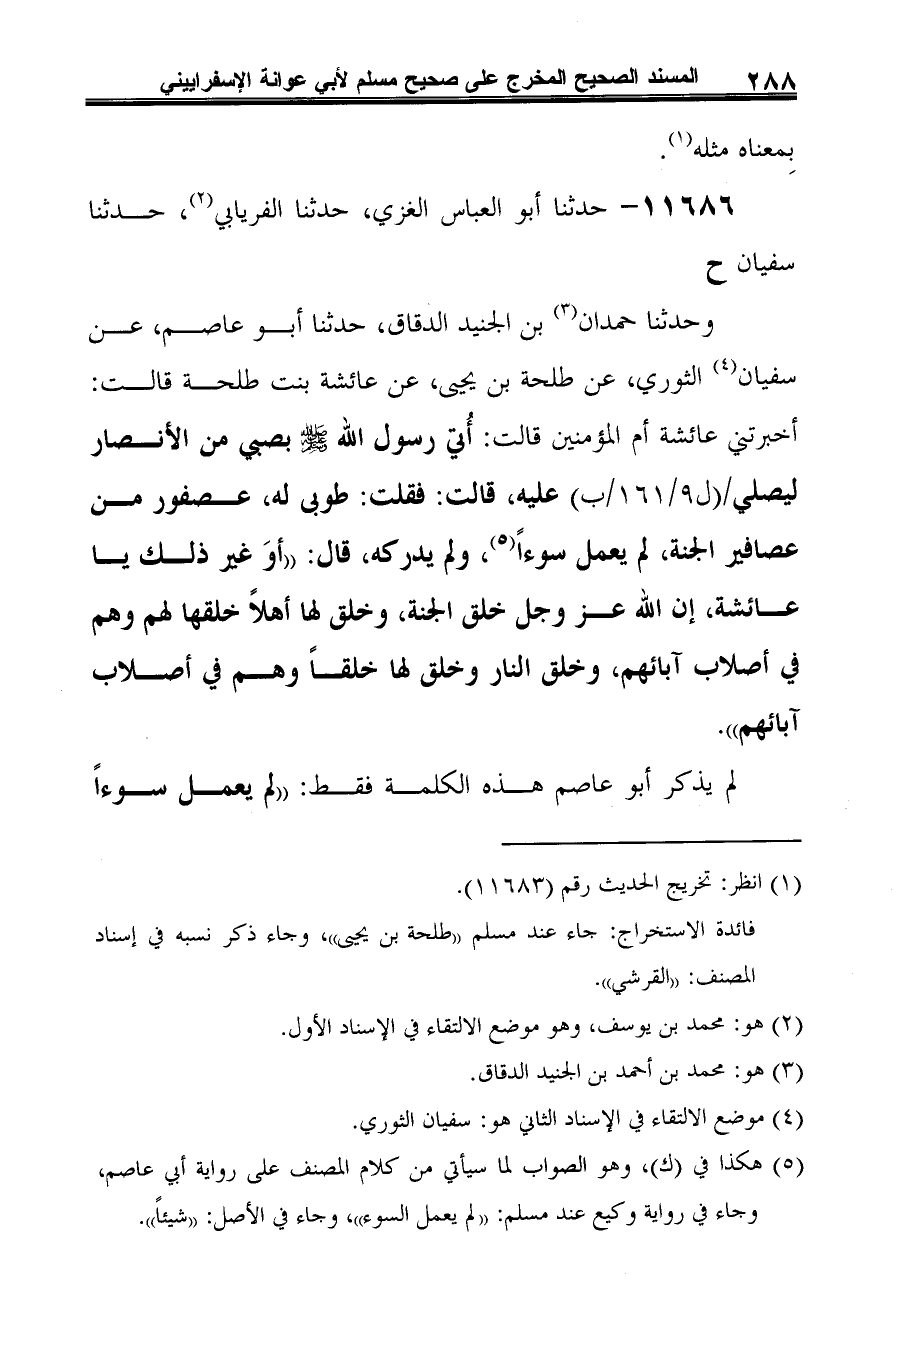 ٢٨٨ المسند الصحيح المخرج على صحيح مسلم لأبي عوانة الإسفراييني
بمعناه مثله(١).
١١٦٨٦- حدثنا أبو العباس الغزي، حدثنا الفريابي(٢)، حـــدثنا
سفيان ح
وحدثنا حمدان(٣) بن الجنيد الدقاق، حدثنا أبـــو عاصـــم، عـــن
سفيان(٤) الثوري، عن طلحة بن يحيى، عن عائشة بنت طلحـــة قالـــت:
أخبرتني عائشة أم المؤمنين قالت: أُتي رسول الله ﷺ بصبي من الأنـــصار
ليصلي/(ل٩/١٦١/ب) عليه، قالت: فقلت: طوبى له، عـــصفور مـــن
عصافير الجنة، لم يعمل سوءاً(٥)، ولم يدركه، قال: ((أوَ غير ذلـــك يـــا
عـــائشة، إن الله عـــز وجل خلق الجنة، وخلق لها أهلاً خلقها لهم وهم
في أصلاب آبائهم، وخلق النار وخلق لها خلقـــاً وهـــم في أصـــلاب
آبائهم)).
لم يذكر أبو عاصم هـــذه الكلمـــة فقـــط: ((لم يعمـــل ســـوءاً
(١) انظر: تخريج الحديث رقم (١١٦٨٣).
فائدة الاستخراج: جاء عند مسلم ((طلحة بن يحيى))، وجاء ذكر نسبه في إسناد
المصنف: ((القرشي)).
(٢) هو: محمد بن يوسف، وهو موضع الالتقاء في الإسناد الأول.
(٣) هو: محمد بن أحمد بن الجنيد الدقاق.
(٤) موضع الالتقاء في الإسناد الثاني هو: سفيان الثوري.
(٥) هكذا في (ك)، وهو الصواب لما سيأتي من كلام المصنف على رواية أبي عاصم،
وجاء في رواية وكيع عند مسلم: ((لم يعمل السوء))، وجاء في الأصل: ((شيئاً)).